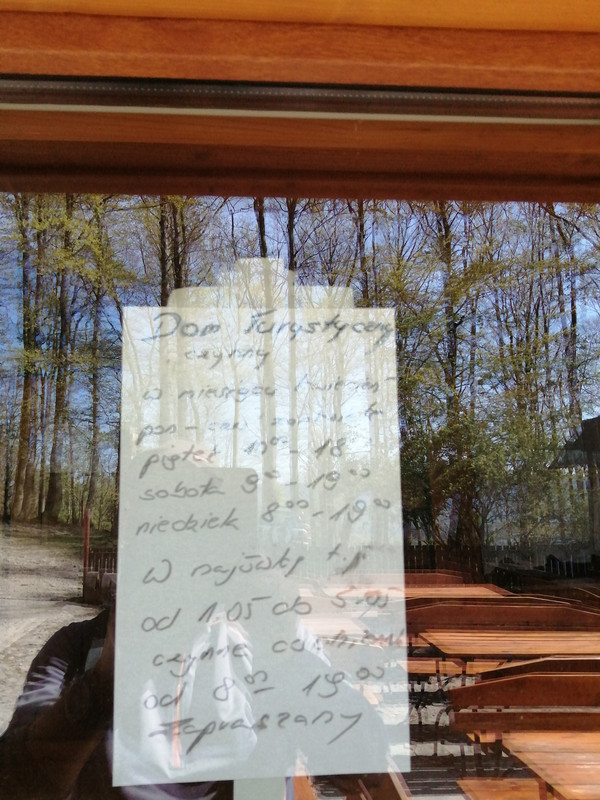 Dom Turystyczny
czynny
w miesiącu kwiecień
pon-
piątek 10⁰⁰ - 18⁰⁰
sobota 9⁰⁰ - 19⁰⁰
niedziela 8⁰⁰ - 19⁰⁰
w majówkę t.j.
od 1.05 do 5.05
czynne codziennie
od 8⁰⁰ - 19⁰⁰
Zapraszamy